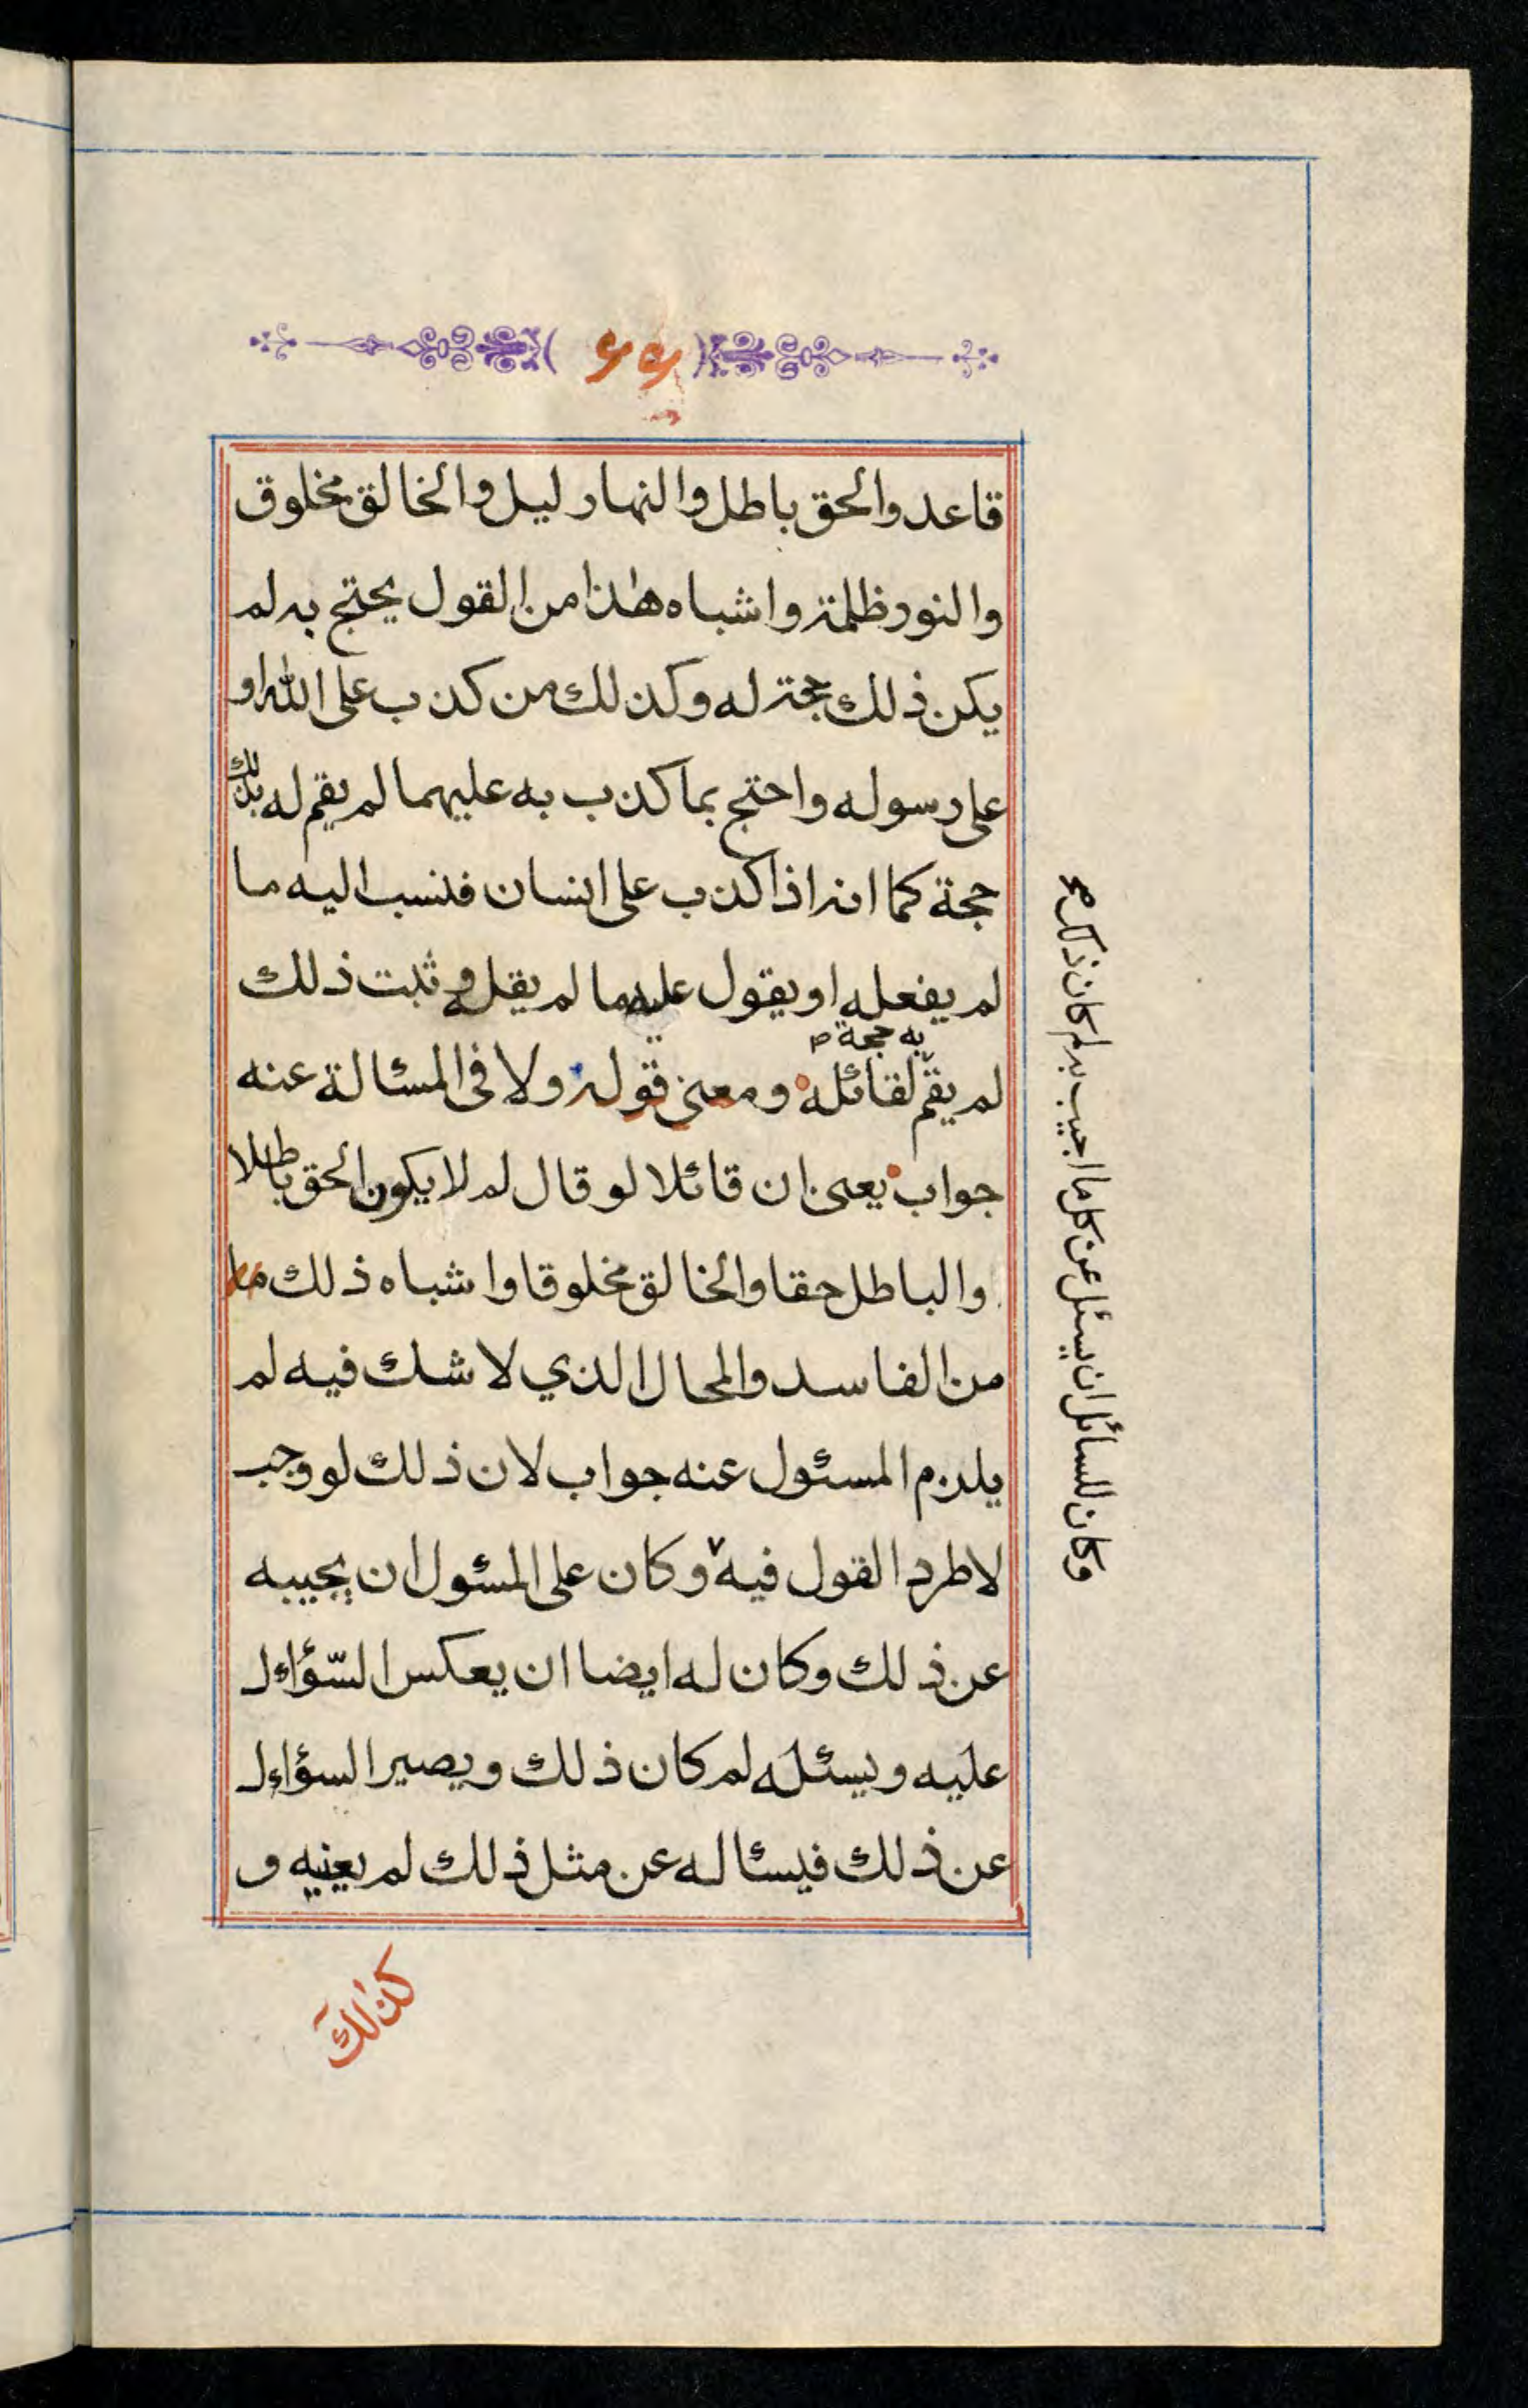 ۶۶
قاعد والحق باطل والنهار ليل والخالق مخلوق
والنور ظلمة واشباه هذا من القول يحتج به لم
يكن ذلك حجة له وكذلك من كذب على الله او
على رسوله واحتج بما كذب به عليهما لم يقم له بذلك
حجة كما انه اذا كذب على انسان فنسب اليه ما
لم يفعله او يقول عليه ما لم يقل وثبت ذلك
به حجة
لم يقم لقائله ومعنى قوله ولا في المسئالة عنه
جواب يعنى ان قائلا لو قال لم لا يكون الحق باطلا
والباطل حقا والخالق مخلوقا واشباه ذلك ما
من الفاسد والمحال الذي لا شك فيه لم
يلزم المسئول عنه جواب لان ذلك لو وجب
لاطرد القول فيه وكان على المسئول ان يجيبه
عن ذلك وكان له ايضا ان يعكس السّؤال
عليه ويسئله لم كان ذلك ويصير السؤال
عن ذلك فيسئاله عن مثل ذلك لم يعنيه و
وكان للسائل ان يسئل عن كل ما اجيب به لم كان ذلك صح
كذلك